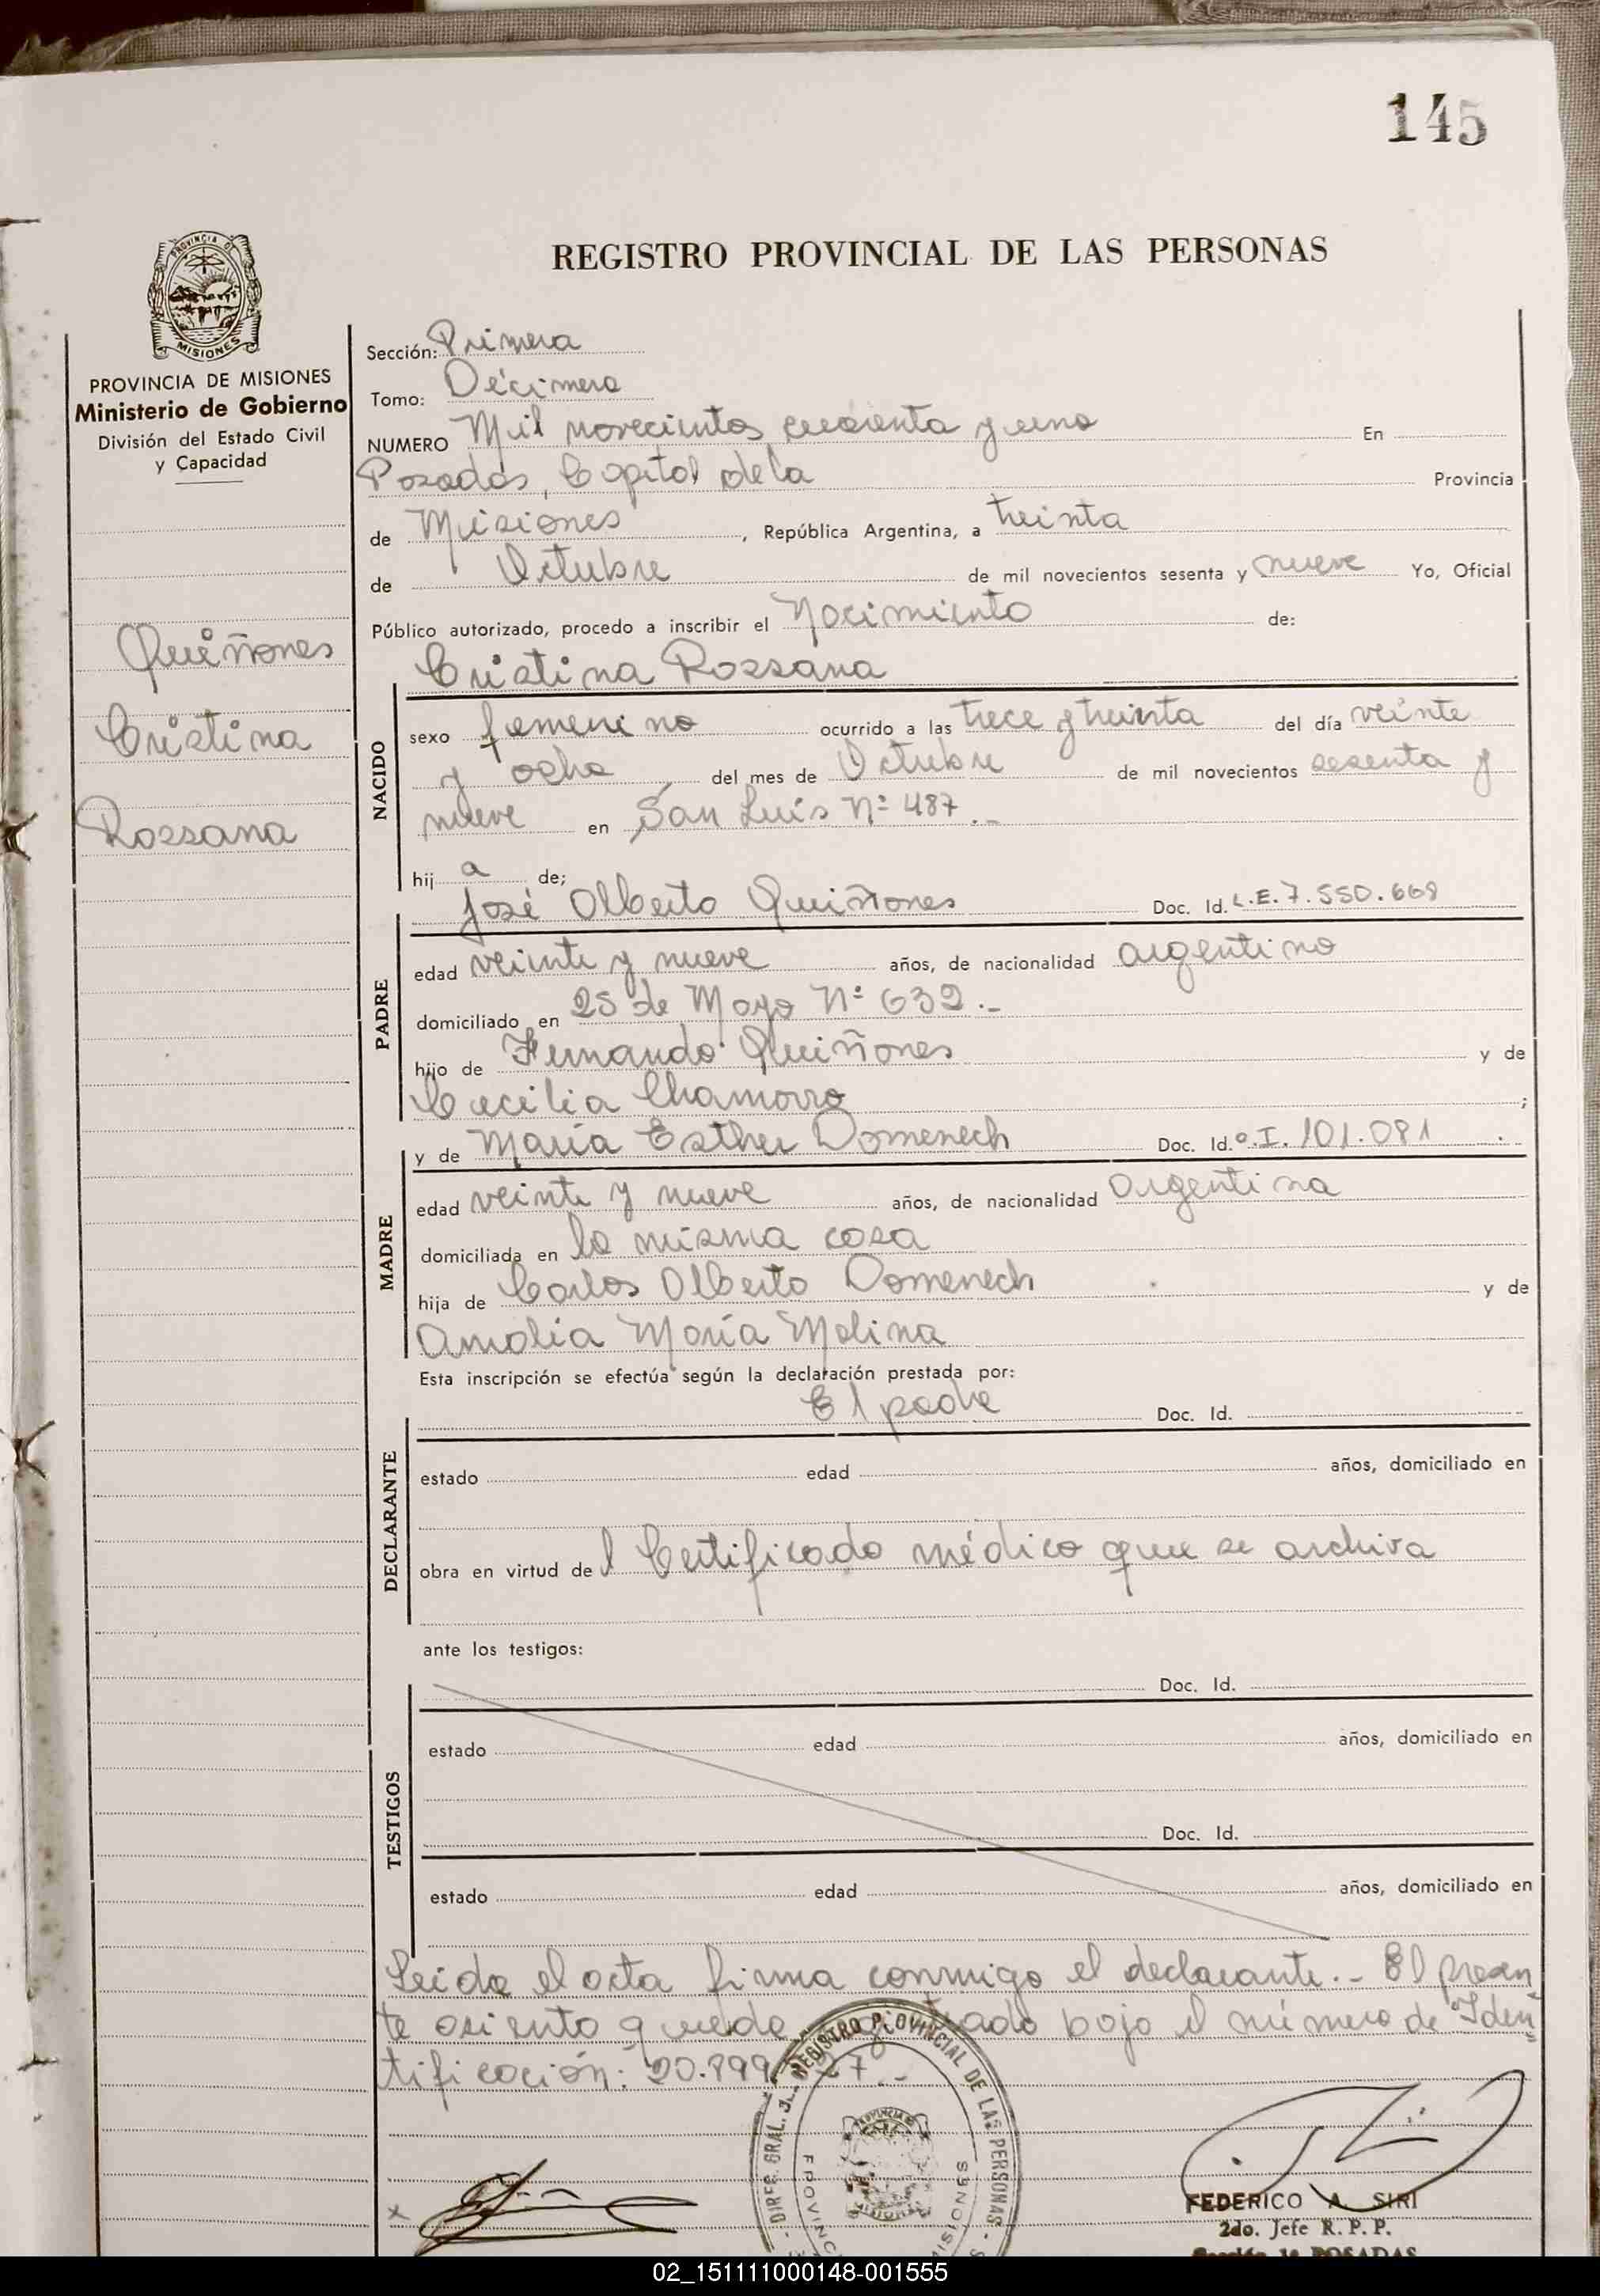 145
REGISTRO PROVINCIAL DE LAS PERSONAS
PROVINCIA DE MISIONES
Ministerio de Gobierno
División del Estado Civil
y Capacidad
Quiñones
Cristina
Rossana
Sección: Primera
Tomo: Décimero
NUMERO Mil novecientos cuarenta y uno En
Posadas, Capital de la Provincia
de Misiones, República Argentina, a treinta
de Octubre de mil novecientos sesenta y nueve Yo, Oficial
Público autorizado, procedo a inscribir el Nacimiento de:
Cristina Rossana
NACIDO
sexo femenino ocurrido a las trece y treinta del día veinte
y ocho del mes de Octubre de mil novecientos sesenta y
nueve en San Luis Nº 487.-
hij a de;
José Alberto Quiñones Doc. Id. L.E. 7.550.669
PADRE
edad veinte y nueve años, de nacionalidad argentino
domiciliado en 25 de Mayo Nº 632.-
hijo de Fernando Quiñones y de
Cecilia Chamorro ;
y de María Esther Domenech Doc. Id. C.I. 101.081
MADRE
edad veinte y nueve años, de nacionalidad argentina
domiciliada en la misma casa
hija de Carlos Alberto Domenech y de
Amalia María Molina
Esta inscripción se efectúa según la declaración prestada por:
El padre Doc. Id.
DECLARANTE
estado edad años, domiciliado en
obra en virtud de l Certificado médico que se archiva
ante los testigos:
Doc. Id.
TESTIGOS
estado edad años, domiciliado en
Doc. Id.
estado edad años, domiciliado en
Leida el acta firma conmigo el declarante.- El presen
te asiento queda bajo el número de "Iden"
tificación: 20.899 27.-
DIREC. GRAL. REGISTRO PROVINCIAL DE LAS PERSONAS
PROVINCIA MISIONES
FEDERICO A. SIRI
2do. Jefe R. P. P.
Sección 1a POSADAS
02_151111000148-001555